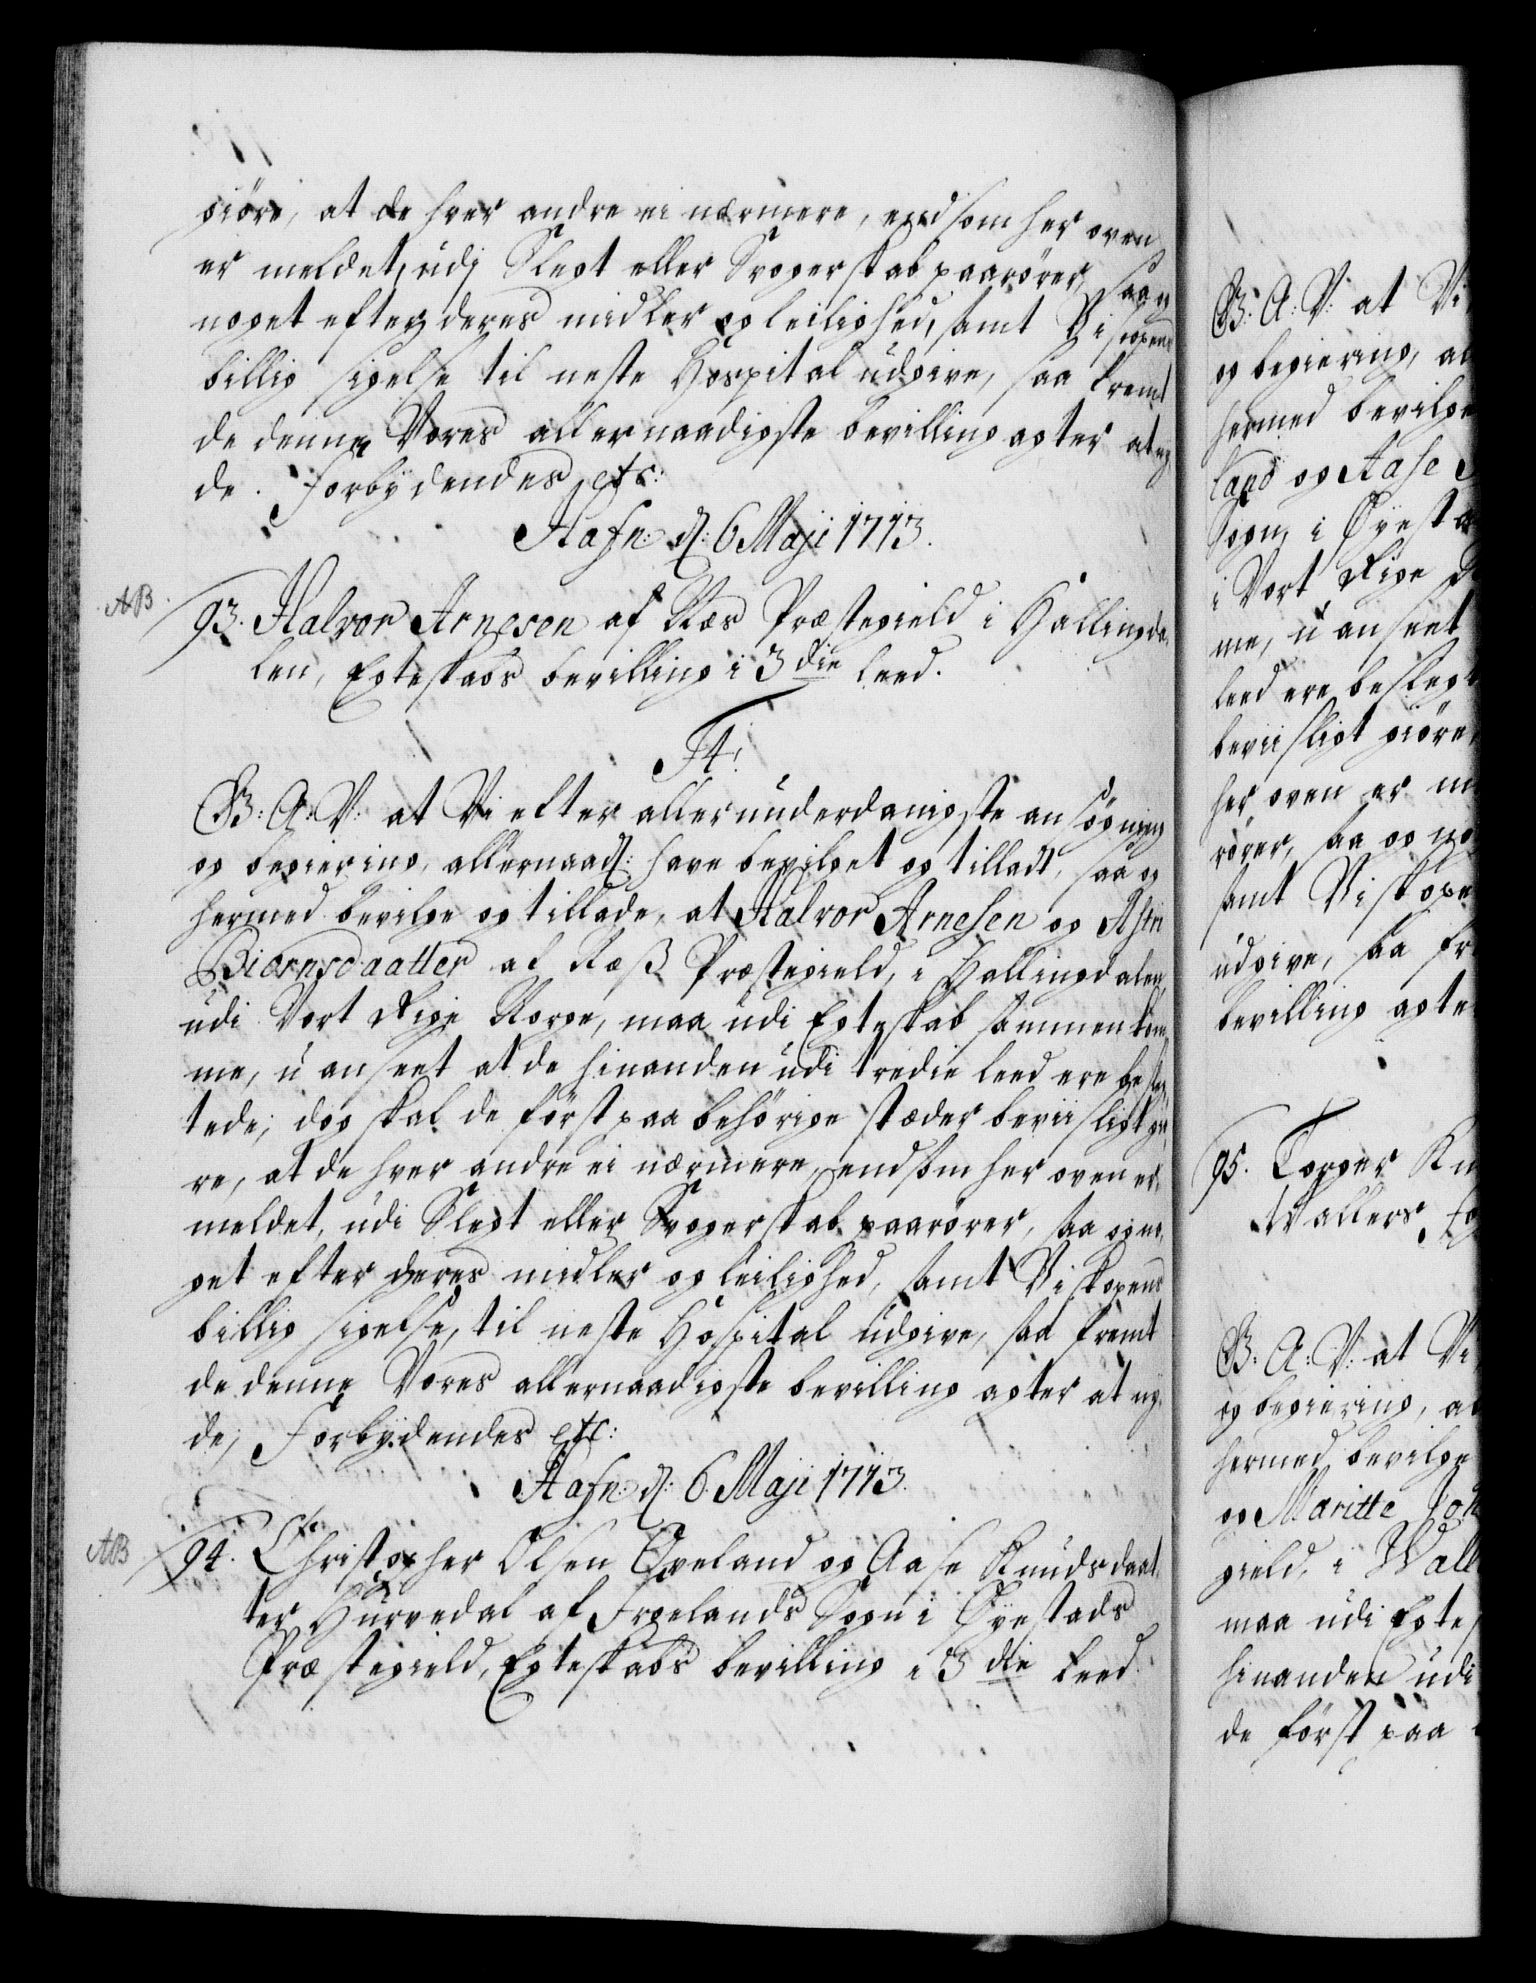 giöre, at de hver andre ei nærmere, end som her oven
er meldet, udj Slegt eller Svogerskab paarörer, saa og
noget efter deres midler og leilighed, samt Biscopens
billig sigelse til neste Hospital udgive, saa fremt
de denne Vores allernaadigste bevilling agter at ny-
de. Forbydendes etc:
Hafn: d: 6 Maji 1713.
AB
93. Halvor Arnesen af Næs Præstegield i Hallingda-
len, Egteskabs bevilling i 3die leed.
F4!
G: A: V: at Vi efter allerunderdanigste ansögning
og begiering, allernaad: have bevilget og tilladt, saa og
hermed bevilge og tillade, at Halvor Arnesen og Astri
Biørnsdaatter af Næß Præstegield, i Hallingdalen,
udi Vort Rige Norge, maa udi Egteskab sammen kom-
me, u anseet at de hinanden udi tredie leed ere besleg-
tede; dog skal de först paa behörige stæder beviisligt giö-
re, at de hver andre ei nærmere, end som her oven er
meldet, udi Slegt eller Svogerskab paarörer, saa og no-
get efter deres midler og leilighed, samt Biskopens
billig sigelse, til neste Hospital udgive, saa fremt
de denne Vores allernaadigste bevilling agter at ny-
de, Forbydendes etc:
Hafn: d: 6. Maji 1713.
AB
94. Christopher Olsen Øveland og Aase Knudsdaat-
ter Hurvedal af Froelands Sogn i Øyestads
Præstegield, Egteskabs bevilling i 3die Leed.
G: A: V: at Vi
og begiering, al
hermed bevilge
land og Aase
Sogn, i Øyesta
i Vort Rige
me, u anseet
leed ere beslegt
beviisligt giöre
her oven er m
rörer, saa og no
samt Biskope
udgive, saa fr
bevilling agte
95. Torger Kn
Wallers, E
G: A: V: at Vi
og begiering, a
hermed bevilge
og Maritte Joh
gield, i Wall
maa udi Egtes
hinanden udi
de först paa